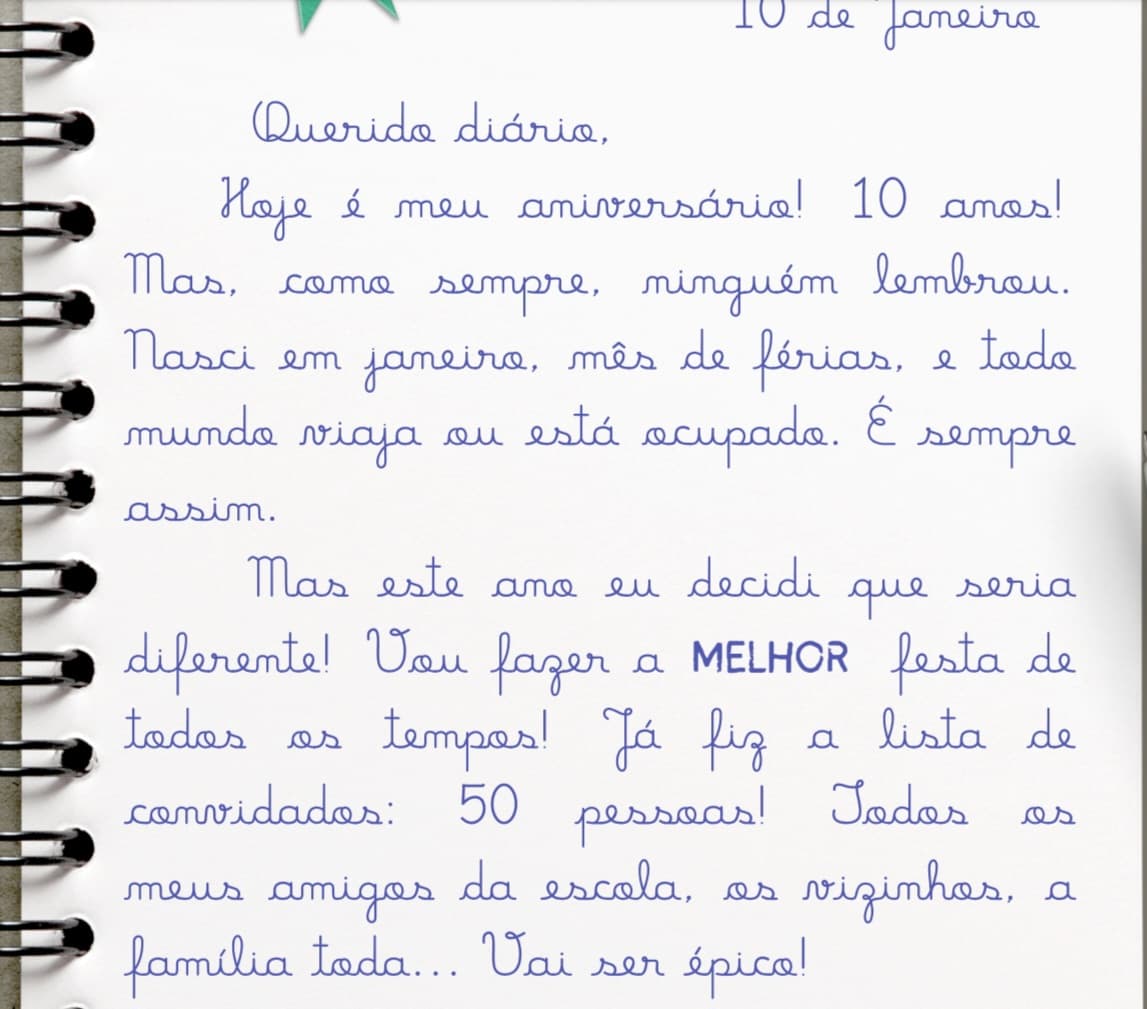 10 de Janeiro
Querido diário,
Hoje é meu aniversário! 10 anos!
Mas, como sempre, ninguém lembrou.
Nasci em janeiro, mês de férias, e todo
mundo viaja ou está ocupado. É sempre
assim.
Mas este ano eu decidi que seria
diferente! Vou fazer a MELHOR festa de
todos os tempos! Já fiz a lista de
convidados: 50 pessoas! Todos os
meus amigos da escola, os vizinhos, a
família toda... Vai ser épico!